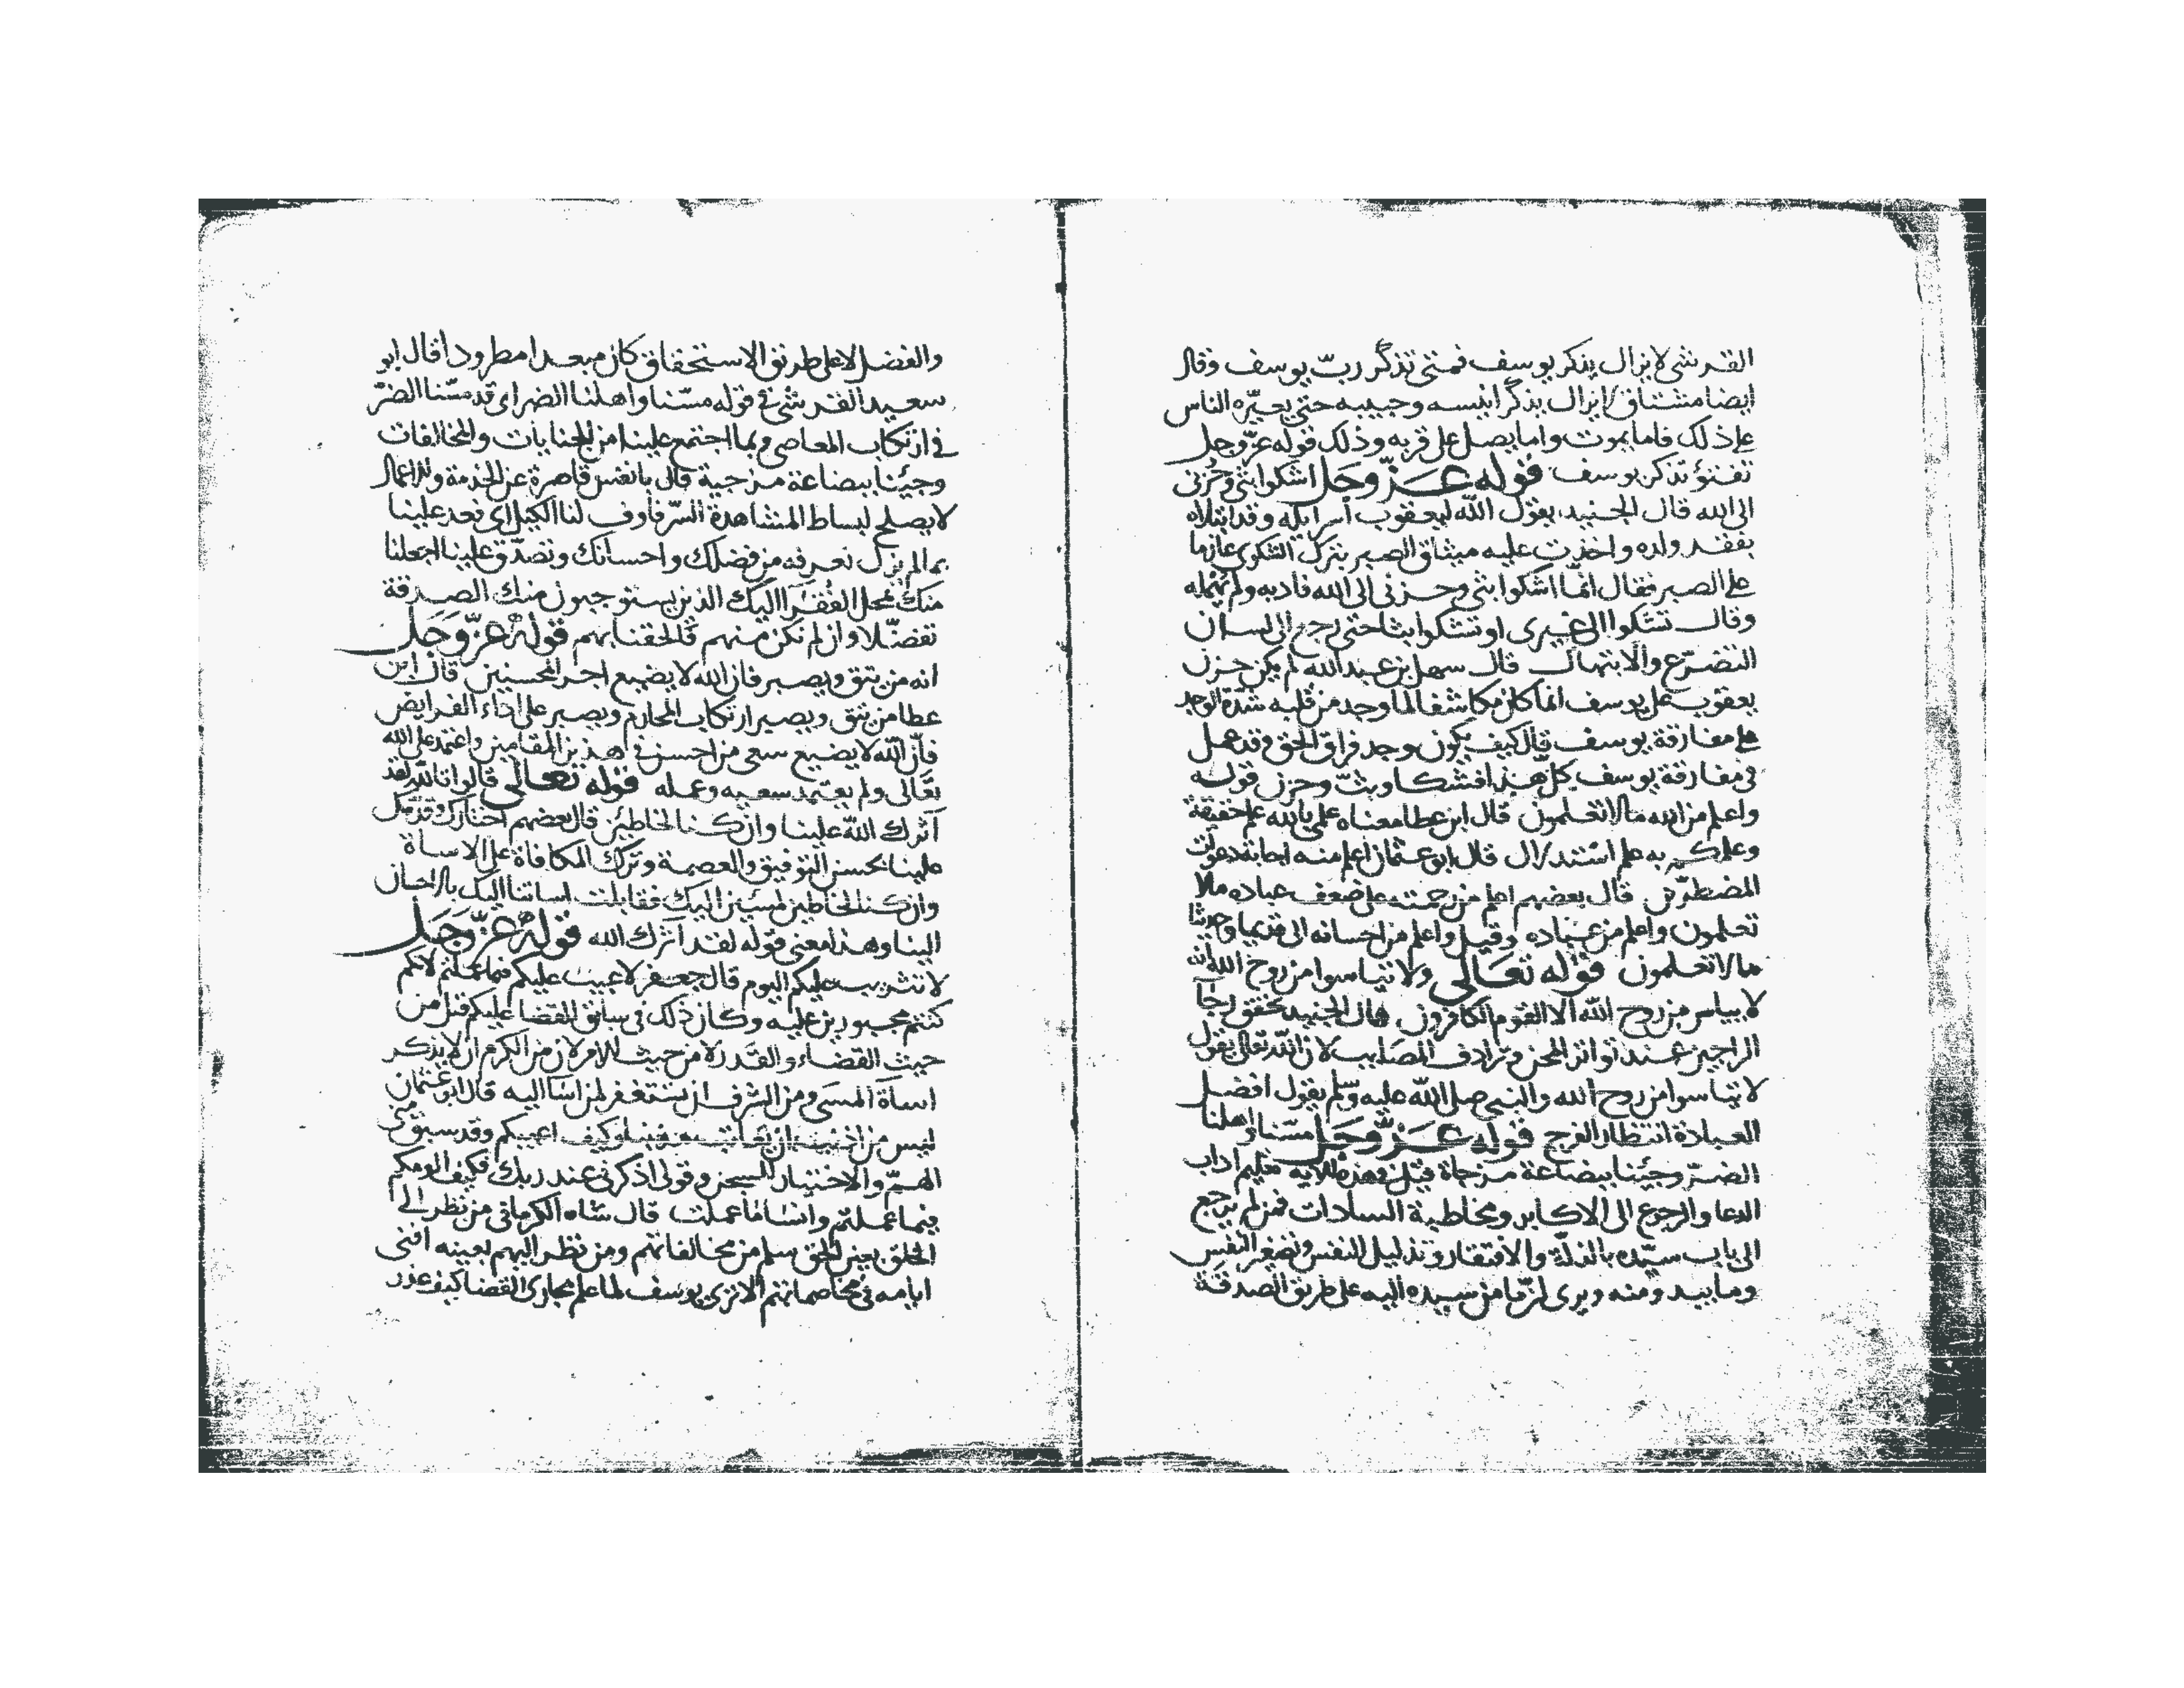 القرشي لا يزال يذكر يوسف فمتى تذكر رب يوسف وقال
ايضا مشتاق لا يزال يذكر انيسه وحبيبه حتى يعيّره الناس
على ذلك فاما يموت واما يصل على قربه وذلك قوله عزّ وجل
تفتؤ تذكر يوسف قوله عزّ وجل اشكوا بثي وحزني
الى الله قال الجنيد يقول الله ليعقوب وقد ابتلاه
بفقد ولده واخذت عليه ميثاق الصبر بترك الشكوى عازما
على الصبر فقال انّما اشكوا بثي وحزني الى الله فادبه ولم يمهله
وقال تشكوا الى غيرى او تشكوا بثا حتى رجع الى لسان
التضرّع والابتهال قال سهل بن عبد الله لم يكن حزن
يعقوب على يوسف انما كان مكاشفا لما وجد من قلبه شدّة الوجد
على مفارقة يوسف قال كيف يكون وجد فراق الحق وقد عمل
في مفارقة يوسف كلّ هذا فشكا وبثّ وحزن قوله
واعلم من الله ما لا تعلمون قال ابن عطا معناه علمي بالله علم حقيقة
وعلمكم به علم استدلال قال ابو عثمان اعلم منه اجابة دعوات
المضطرّين قال بعضهم اعلم من رحمته على ضعف عباده ما لا
تعلمون واعلم من عباده وقيل واعلم من احسانه الى قديما وحديثا
ما لا تعلمون قوله تعالى ولا تيأسوا من روح الله انه
لا ييأس من روح الله الا القوم الكافرون قال الجنيد تحقق رجآ
الراجين عند تواتر المحن وترادف المصايب لان الله تعالى يقول
لا تيأسوا من روح الله والنبي صلى الله عليه وسلم يقول افضل
العبادة انتظار الفرج قوله عزّ وجل مسّنا واهلنا
الضرّ وجئنا ببضاعة مزجاة قيل وهذه الآية تعليم اداب
الدعا والرجوع الى الاكابر ومخاطبة السادات فمن لم يرجع
الى باب سيّده بالذلّة والافتقار وتذليل النفس وتصغير النفس
وما يبدو منه ويرى ان ما من سيده اليه على طريق الصدقة
والفضل لا على طريق الاستحقاق كان مبعدا مطرودا قال ابو
سعيد القرشي في قوله مسّنا واهلنا الضر اى قد مسّنا الضرّ
في ارتكاب المعاصي وبما اجتمع علينا من الجنايات والمخالفات
وجئنا ببضاعة مزجية قال بانفس قاصرة عن الخدمة واعمال
لا يصلح لبساط المشاهدة السرّ فاوف لنا الكيل اى تعد علينا
بما لم نزل نعرفه من فضلك واحسانك وتصدّق علينا اجعلنا
منك محل الفقرآ اليك الذين يستوجبون منك الصدقة
تفضّلا وان لم نكن منهم فالحقنا بهم قوله عزّ وجل
انه من يتق ويصبر فان الله لا يضيع اجر المحسنين قال ابن
عطا من يتق ويصبر ارتكاب المحارم ويصبر على اداء الفرايض
فانّ الله لا يضيع سعى من احسن في هذين المقامين واعتمد على الله
تعالى ولم يعتمد سعيه وعمله قوله تعالى قالوا تالله لقد
آثرك الله علينا وان كنا لخاطئين قال بعضهم اختارك وقدّمك
علينا بحسن التوفيق والعصمة وترك المكافاة على الاساة
وان كنا لخاطين لمسيئين اليك فقابلت اساتنا اليك بالاحسان
الينا وهذا معنى قوله لقد آثرك الله قوله عزّ وجل
لا تثريب عليكم اليوم قال جعفر لا عيب عليكم فيما عملتم لانكم
كنتم مجبورين عليه وكان ذلك في سابق القضا عليكم قيل من
حيث القضاء والقدر لا من حيث الامر لان من الكرم ان لا يذكر
اسآة المسى ومن الشرف ان تستغفر لمن اسآ اليه قال ابو عثمان
ليس من اذنب ان يعاتب من وكيف اعيبكم وقد سبق منى
الهمّ والاختيار السجن وقولى اذكرنى عند ربك فكيف الومكم
فيما عملتم وانسا ما عملت قال شاه الكرمانى من نظر الى
الخلق بعين الحق سلم من مخالفاتهم ومن نظر اليهم بعينه افنى
ايامه في مخاصماتهم الا ترى يوسف لما علم مجارى القضا كيف عذر